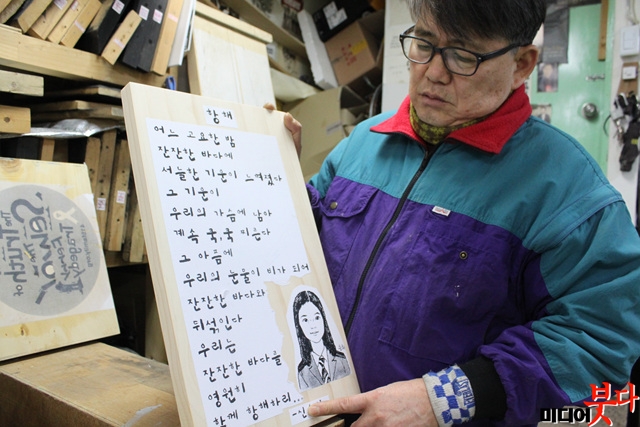 항해
어느 고요한 밤
잔잔한 바다에
서늘한 기운이 느껴졌다
그 기운이
우리의 가슴에 남아
계속 쿡,쿡 찌른다
그 아픔에
우리의 눈물이 비가 되어
잔잔한 바다와
뒤섞인다
우리는
잔잔한 바다를
영원히
함께 항해하리...
The TRUTH of
SEWOL
Ferry
Tragedy
미디어 붓다